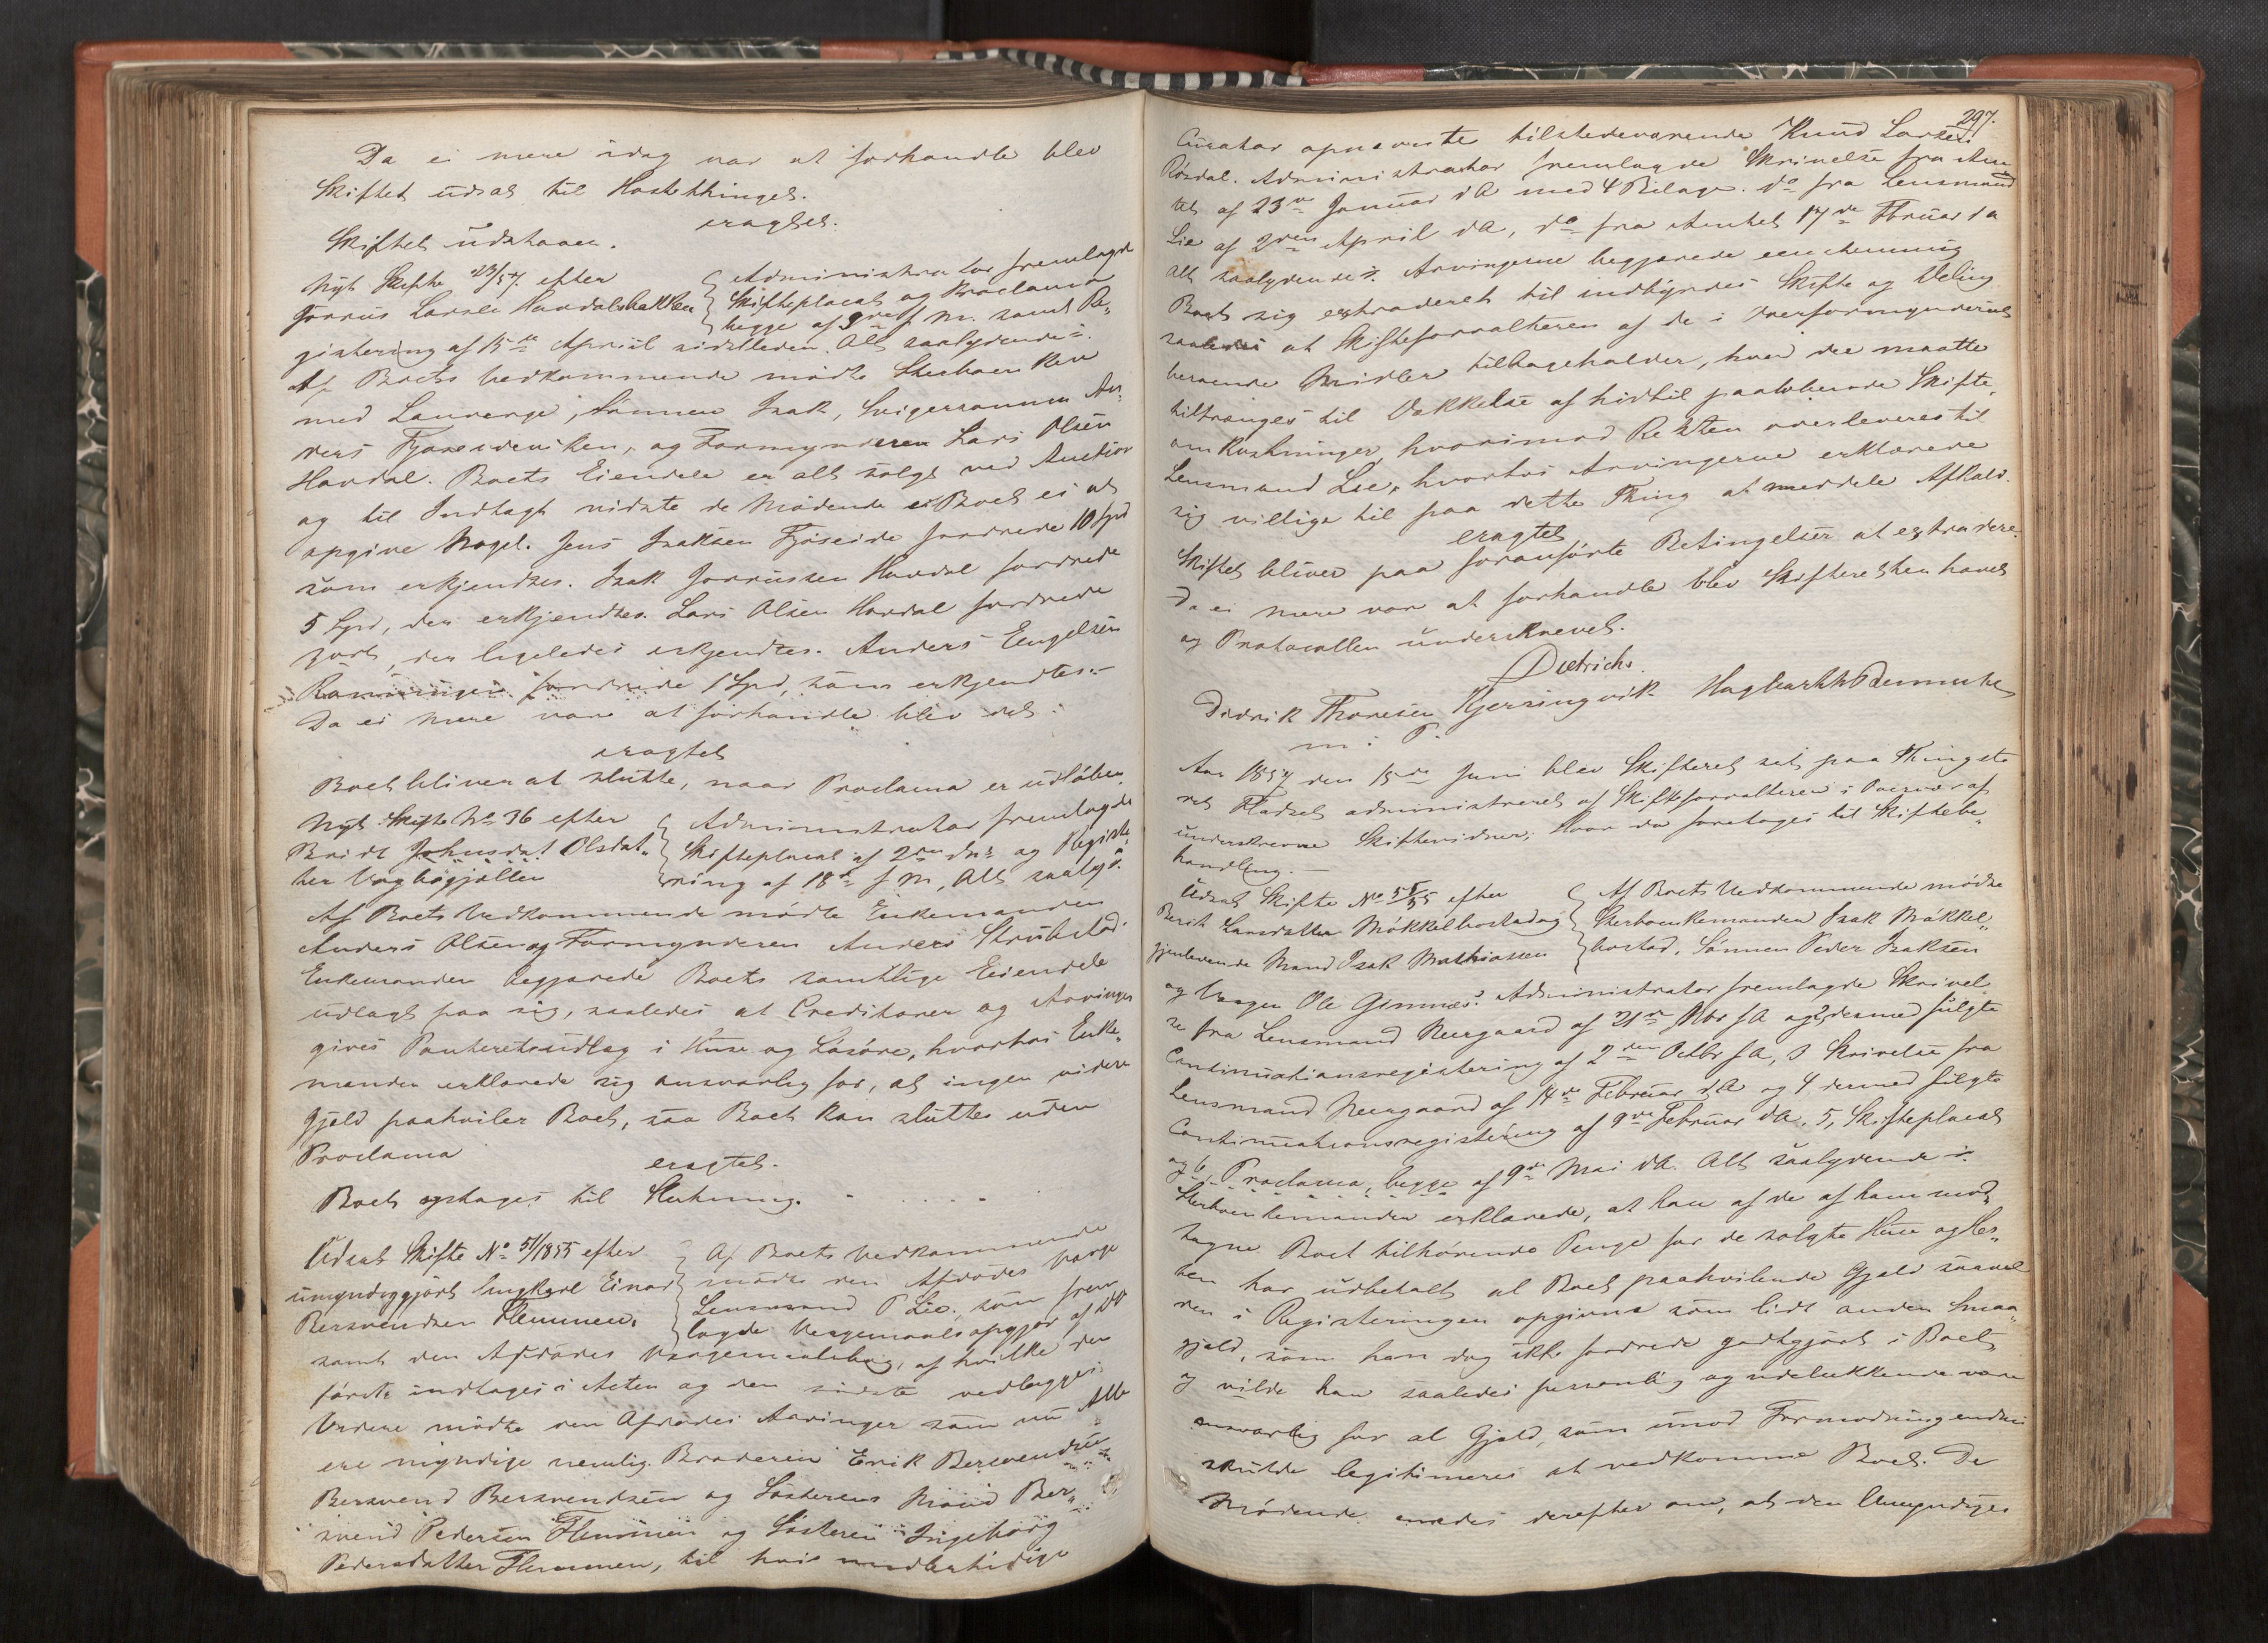 Da ei mere idag var at forhandle blev
Skiftet udsat til Høstthinget.
eragtet.
Skiftet udstaaer.
Nyt Skifte 23/57 efter
Jorrus Larsen Havdalsbakken
Administrator fremlagde
Skifteplacat og Proclama
begge af 9de f. M. samt Re„
gistering af 15de April sidstleden. Alt saalydende:
Af Boets Vedkommende mødte Sterboen ken
med Laurenge, Sønnen Isak, Svigersønnen An„
ders Fjøseidviken, og Formynderen Lars Olsen
Havdal. Boets Eiendele er alt solgt ved Auction
og til Indtægt vidste de Mødende i Boet ei at
opgive Noget. Jens Isaksen Fjøseide fordrede 10 Spd
som erkjendtes. Isak Jorrussen Havdal fordrede
5 Spd, der erkjendtes. Lars Olsen Havdal fordrede
5 ort, der ligeledes erkjendtes. Anders Engelsen
fordrede 1 Spd, som erkjendtes.
Da ei mere var at forhandle blev det:
eragtet
Boet bliver at slutte, naar Proclama er udløben.
Nyt Skifte No 36 efter
Beridt Johnsdat Olsdat„
ter Vaghøgjøllen
Administrator fremlagde
Skifteplacat af 2den ds og Registe„
ring af 18de f M, Alt saalyd.
Af Boets Vedkommende mødte Enkemanden
Anders Olsen og Formynderen Anders Strubstad.
Enkemanden begjærede Boets samtlige Eiendele
udlagt paa sig, saaledes at Creditorer og Arvinger
gives Panteretsudlæg i Huse og Løsøre, hvorhos Enke„
manden erklærede sig ansvarlig for, at ingen videre
Gjæld paahviler Boet, saa Boet kan sluttes uden
Proclama
eragtet.
Boet optages til Slutning.
Udsat Skifte No 51/1855 efter
umyndiggjort Ungkarl Einar
Bersvendsen Flemmen.
Af Boets Vedkommende
mødte den Afdødes Værge
Lensmand P Lie, som frem
lagde Værgemaalsopgjør af
samt den Afdødes Værgemaalsbog, af hvilke den
første indtages i Acten og den sidste vedlægges.
Videre mødte den Afdødes Arvinger som nu Alle
ere myndige nemlig Broderen Erik Bersvendsen
Bersvend Bersvendsen og Søsterens Mand Ber„
svend Pedersen Flemmen og Søsteren Ingeborg
Pedersdatter Flemmen, til hvis midlertidige
297.
Curator opnævnte tilstedeværende Knud Larsen
Røsdal. Administrator fremlagde Skrivelse fra Am
tet af 23de Januar dA med 4 Bilage. do fra Lensmand
Lie af 2den April dA, do fra Amtet 17de Fbruar dA
Alt saalydende:. Arvingerne begjærede eenstemmig
Boet sig extraderet til indbyrdes Skifte og Deling
saaledes at Skifteforvalteren af de i Overformynderiet
beroende Midler tilbageholder, hvad der maatte
tiltrænges til Dækkelse af hidtil paaløbende Skifte„
omkostninger, hvorimod Resten overleveres til
Lensmand Lie, hvorhos Arvingerne erklærede
sig villige til paa dette Thing at meddele Afkald.
eragtet
Skiftet bliver paa foranførte Betingelser at extradere.
Da ei mere var at forhandle blev Skifteretten hævet
og Protocollen underskrevet.
Dietrichs.
Didrik Thoresen Kjerringvik Hagbarth
m: P.
Aar 1857 den 15de Juni blev Skifteret sat paa Thingste
det Pladset administreret af Skifteforvalteren i Overvær af
underskrevne Skiftevidner; Hvor da foretoges til Skiftebe„
handling.
Udsat Skifte No 55/55 efter
Berit Larsdatter Møkkelbostad og
gjenlevende Mand Isak Mathiassen
Af Boets Vedkommende mødte
Sterboenkemanden Isak Møkkel„
bostad, Sønnen Peder Isaksen
og Værgen Ole Gimnæs. Administrator fremlagde Skrivel
se fra Lensmand Neergaard af 21de Nbr f A og 2, dermed fulgte
Continuationsregistering af 2den Octbr f A, 3 Skrivelse fra
Lensmand Neergaard af 14de Februar dA og 4 dermed fulgte
Continuationsregistering af 9de Februar dA. 5, Skifteplacat
og 6, Proclama, begge af 9de Mai dA. Alt saalydende:
Sterboenkemanden erklærede, at han af de af ham mod„
tagne Boet tilhørende Penge for de solgte Huse og Hes„
ten har udbetalt al Boet paahvilende Gjæld saavel
den i Registeringen opgivne som lidt anden Smaa„
gjæld, som han dog ikke fordrede godtgjort i Boet
og vilde han saaledes personlig og udelukkende være
ansvarlig for al Gjæld, som imod Formodning endnu
skulde legitimeres at vedkomme Boet. De
Mødende enedes derefter om, at den Umyndiges